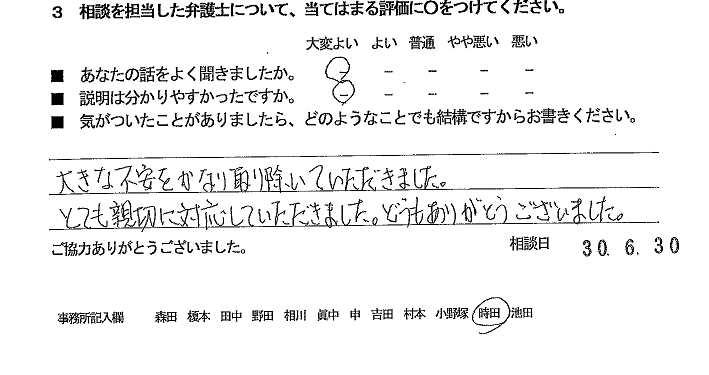 3 相談を担当した弁護士について、当てはまる評価に〇をつけてください。
大変よい よい 普通 やや悪い 悪い
■ あなたの話をよく聞きましたか。 － － － － －
■ 説明は分かりやすかったですか。 － － － － －
■ 気がついたことがありましたら、どのようなことでも結構ですからお書きください。
大きな不安をかなり取り除いていただきました。
とても親切に対応していただきました。どうもありがとうございました。
ご協力ありがとうございました。 相談日 30. 6. 30
事務所記入欄 森田 榎本 田中 野田 相川 眞中 申 吉田 村本 小野塚 時田 池田